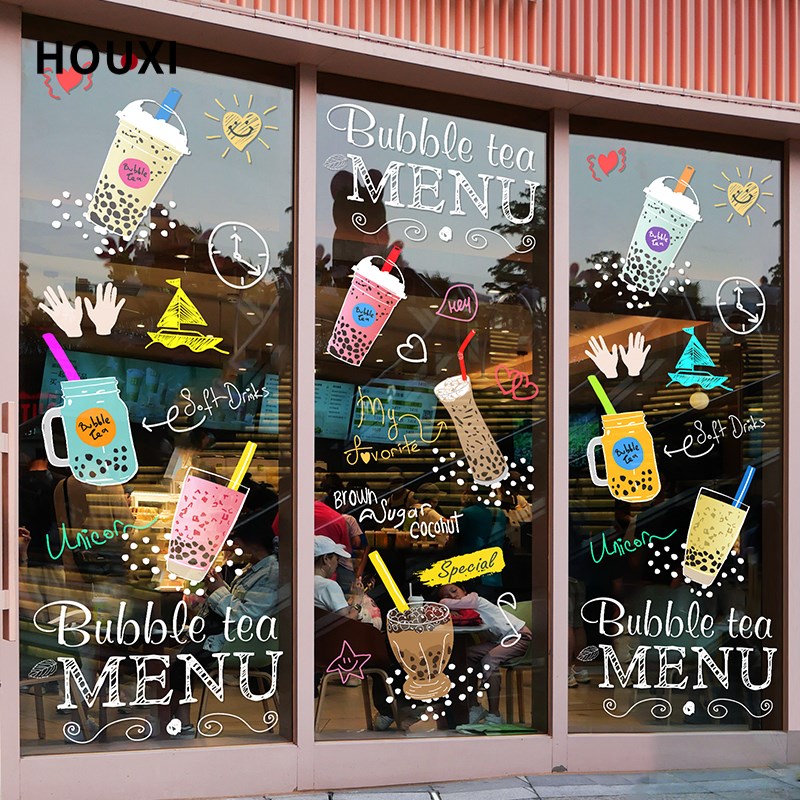 HOUXI
Bubble
Tea
Soft Drinks
Bubble
Tea
Unicorn
Bubble tea
MENU
Bubble tea
MENU
Hey
Bubble
Tea
My
favorite
Brown
Sugar
coconut
Special
Bubble
Tea
Soft Drinks
Bubble
Tea
Unicorn
Bubble tea
MENU